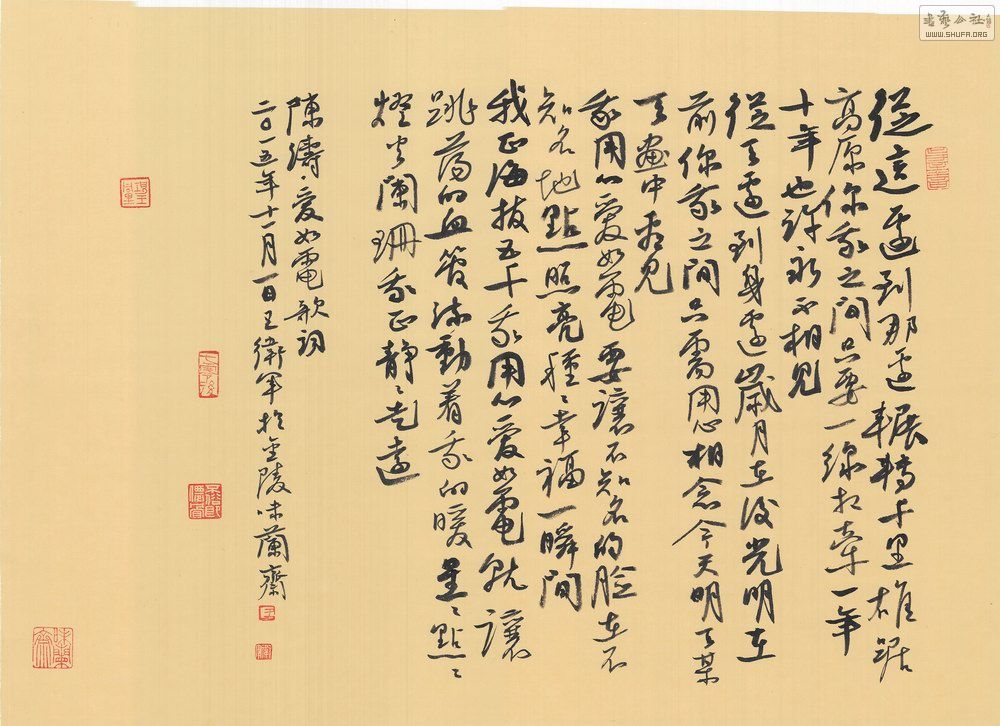 書藝公社
WWW.SHUFA.ORG
從這邊到那邊輾轉千里雄踞
高原你我之間只要一線相牽一年
十年也許永不相見
從天邊到身邊歲月在後光明在
前你我之間只需用心相念今天明天某
天畫中看見
我用心愛如電要讓不知名的臉在不
知名地點照亮種〻幸福一瞬間
我正海拔五千我用心愛如電就讓
跳蕩的血管流動着我的暖星〻點〻
燈火闌珊我正靜〻走遠
陳濤·愛如電歌詞
二〇一五年十一月一日王衛軍於金陵味蘭齋